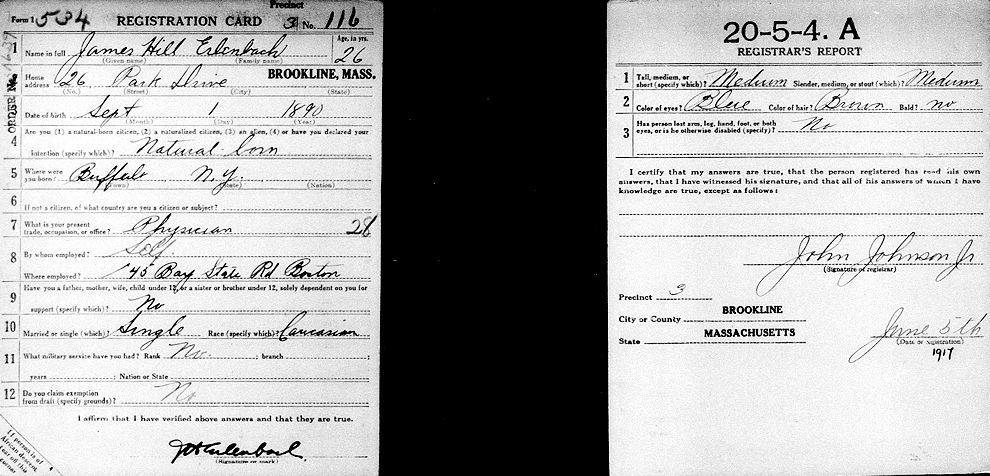 Form 1 534 REGISTRATION CARD Precinct 3 No. 116
ORDER No 1639
1 Name in full James Hill Erlenbach Age, in yrs. 26
(Given name) (Family name)
Home address 26 Park Drive BROOKLINE, MASS.
(No.) (Street) (City) (State)
Date of birth Sept 1 1890
(Month) (Day) (Year)
Are you (1) a natural-born citizen, (2) a naturalized citizen, (3) an alien, (4) or have you declared your
4 intention (specify which)? Natural born
5 Where were you born? Buffalo N.Y.
(Town) (State) (Nation)
6 If not a citizen, of what country are you a citizen or subject?
7 What is your present trade, occupation, or office? Physician 28
8 By whom employed? Self
Where employed? 45 Bay State Rd Boston
9 Have you a father, mother, wife, child under 12, or a sister or brother under 12, solely dependent on you for
support (specify which)? No
10 Married or single (which)? Single Race (specify which)? Caucasian
11 What military service have you had? Rank No ; branch ;
years ; Nation or State
12 Do you claim exemption from draft (specify grounds)? No
I affirm that I have verified above answers and that they are true.
JH Erlenbach
(Signature or mark)
If person is of
African descent,
tear off this
corner
20-5-4. A
REGISTRAR'S REPORT
1 Tall, medium, or short (specify which)? Medium Slender, medium, or stout (which)? Medium
2 Color of eyes? Blue Color of hair? Brown Bald? no
3 Has person lost arm, leg, hand, foot, or both
eyes, or is he otherwise disabled (specify)? No
I certify that my answers are true, that the person registered has read his own
answers, that I have witnessed his signature, and that all of his answers of which I have
knowledge are true, except as follows:
John Johnson Jr
(Signature of registrar)
Precinct 3
City or County BROOKLINE
State MASSACHUSETTS
June 5th
(Date of registration)
1917